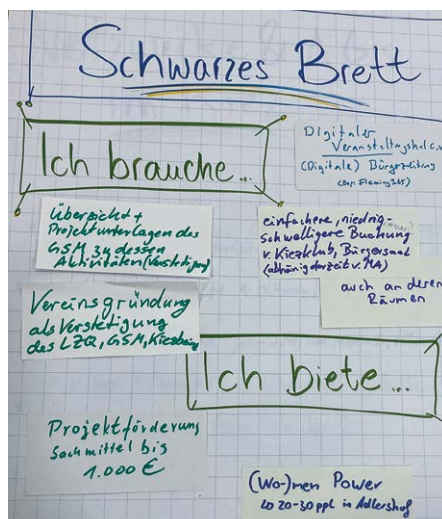 Schwarzes Brett
Ich brauche...
Digitaler
(Digitale) Bürgerzeitung
Übersicht +
Projektunterlagen des
GSM zu dessen
Aktivitäten
einfachere, niedrig-
schwelligere Buchung
v. Kiezklub, Bürgersaal
(abhängig derzeit v. MA)
auch an deren
Räumen
Vereinsgründung
als Verstetigung
des LZQ, GSM,
Ich biete...
Projektförderung
Sachmittel bis
1.000 €
(Wo-)men Power
20-30 ppl in Adlershof